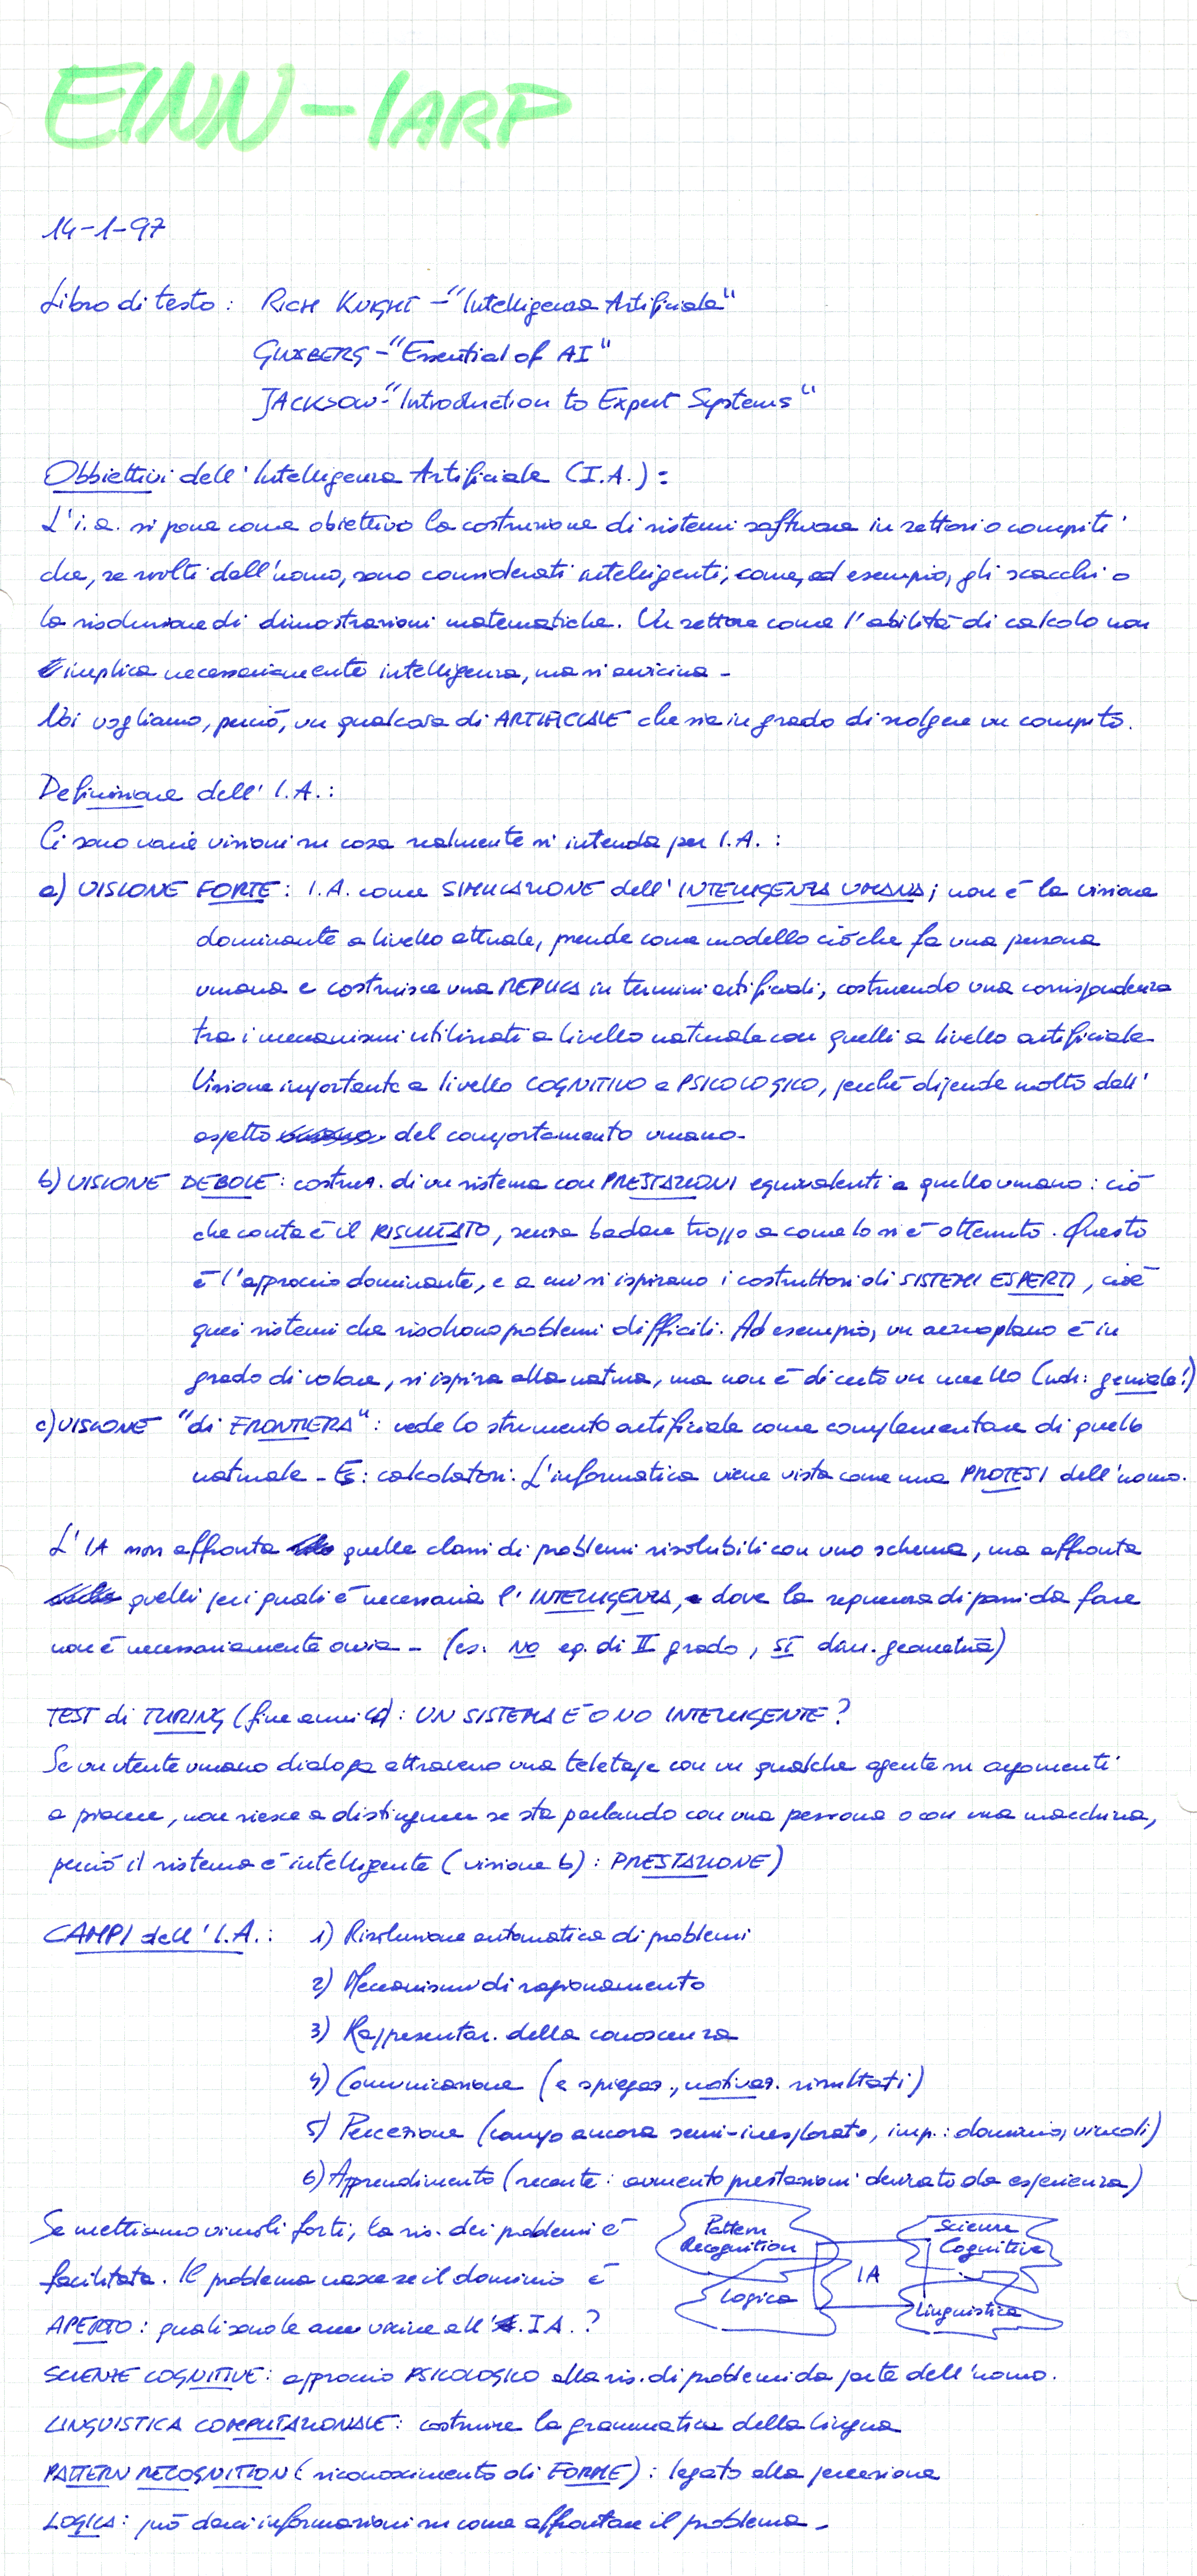 EINN - IARP
14-1-97
Libro di testo: RICH KNIGHT - "Intelligenza Artificiale"
GINSBERG - "Essential of AI"
JACKSON - "Introduction to Expert Systems"
Obbiettivi dell'Intelligenza Artificiale (I.A.):
L'i.a. si pone come obiettivo la costruzione di sistemi software in settori o compiti
che, se svolti dall'uomo, sono considerati intelligenti, come, ad esempio, gli scacchi o
la risoluzione di dimostrazioni matematiche. Un settore come l'abilità di calcolo non
implica necessariamente intelligenza, ma si avvicina -
Noi vogliamo, perciò, un qualcosa di ARTIFICIALE che sia in grado di svolgere un compito.
Definizione dell'I.A.:
Ci sono varie visioni su cosa realmente si intenda per I.A.:
a) VISIONE FORTE: I.A. come SIMULAZIONE dell'INTELLIGENZA UMANA; non è la visione
dominante a livello attuale, prende come modello ciò che fa una persona
umana e costruisce una REPLICA in termini artificiali, costruendo una corrispondenza
tra i meccanismi utilizzati a livello naturale con quelli a livello artificiale.
Visione importante a livello COGNITIVO e PSICOLOGICO, perché dipende molto dall'
aspetto del comportamento umano.
b) VISIONE DEBOLE: costruz. di un sistema con PRESTAZIONI equivalenti a quello umano: ciò
che conta è il RISULTATO, senza badare troppo a come lo si è ottenuto. Questo
è l'approccio dominante, e a cui si ispirano i costruttori di SISTEMI ESPERTI, cioè
quei sistemi che risolvono problemi difficili. Ad esempio, un aeroplano è in
grado di volare, si ispira alla natura, ma non è di certo un uccello (ndr: geniale!)
c) VISIONE "di FRONTIERA": vede lo strumento artificiale come complementare di quello
naturale - Es: calcolatori. L'informatica viene vista come una PROTESI dell'uomo.
L'IA non affronta quelle classi di problemi risolubili con uno schema, ma affronta
quelli per i quali è necessaria l'INTELLIGENZA, e dove la sequenza di passi da fare
non è necessariamente ovvia - (es. NO eq. di II grado, SI dim. geometria)
TEST di TURING (fine anni 40): UN SISTEMA È O NO INTELLIGENTE?
Se un utente umano dialoga attraverso una teletype con un qualche agente su argomenti
a piacere, non riesce a distinguere se sta parlando con una persona o con una macchina,
perciò il sistema è intelligente (visione b): PRESTAZIONE)
CAMPI dell'I.A.: 1) Risoluzione automatica di problemi
2) Meccanismi di ragionamento
3) Rappresentaz. della conoscenza
4) Comunicazione (e spiegaz., motivaz. risultati)
5) Percezione (campo ancora semi-inesplorato, imp.: dominio, vincoli)
6) Apprendimento (recente: aumento prestazioni derivato da esperienza)
Se mettiamo vincoli forti, la ris. dei problemi è
facilitata. Il problema nasce se il dominio è
APERTO: quali sono le aree vicine all'I.A.?
Pattern Recognition
Scienze Cognitive
IA
Logica
Linguistica
SCIENZE COGNITIVE: approccio PSICOLOGICO alla ris. di problemi da parte dell'uomo.
LINGUISTICA COMPUTAZIONALE: costruire la grammatica della lingua
PATTERN RECOGNITION (riconoscimento di FORME): legato alla percezione
LOGICA: può darci informazioni su come affrontare il problema -